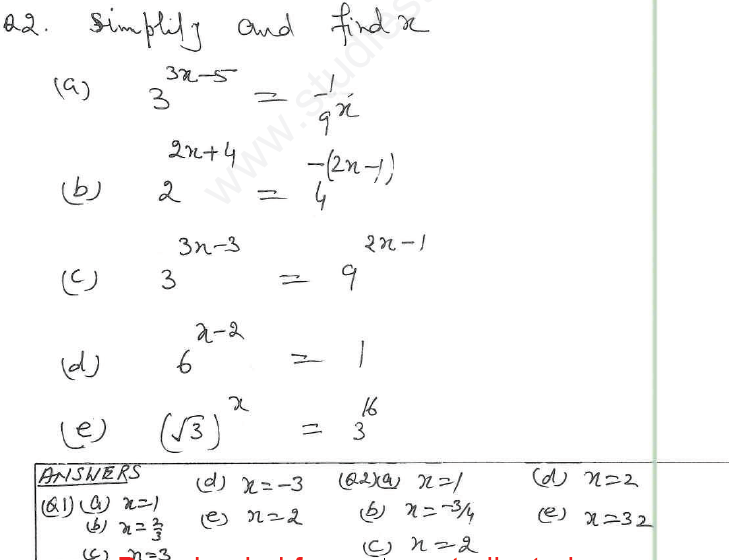 Q2. Simplify and find x
(a) 3^(3x-5) = 1/9^x
(b) 2^(2x+4) = 4^(-(2x-1))
(c) 3^(3x-3) = 9^(2x-1)
(d) 6^(x-2) = 1
(e) (√3)^x = 3^16
ANSWERS
(Q1) (a) x=1
(b) x=2/3
(c) x=3
(d) x=-3
(e) x=2
(Q2)(a) x=1
(b) x=-3/4
(c) x=2
(d) x=2
(e) x=32
www.studies